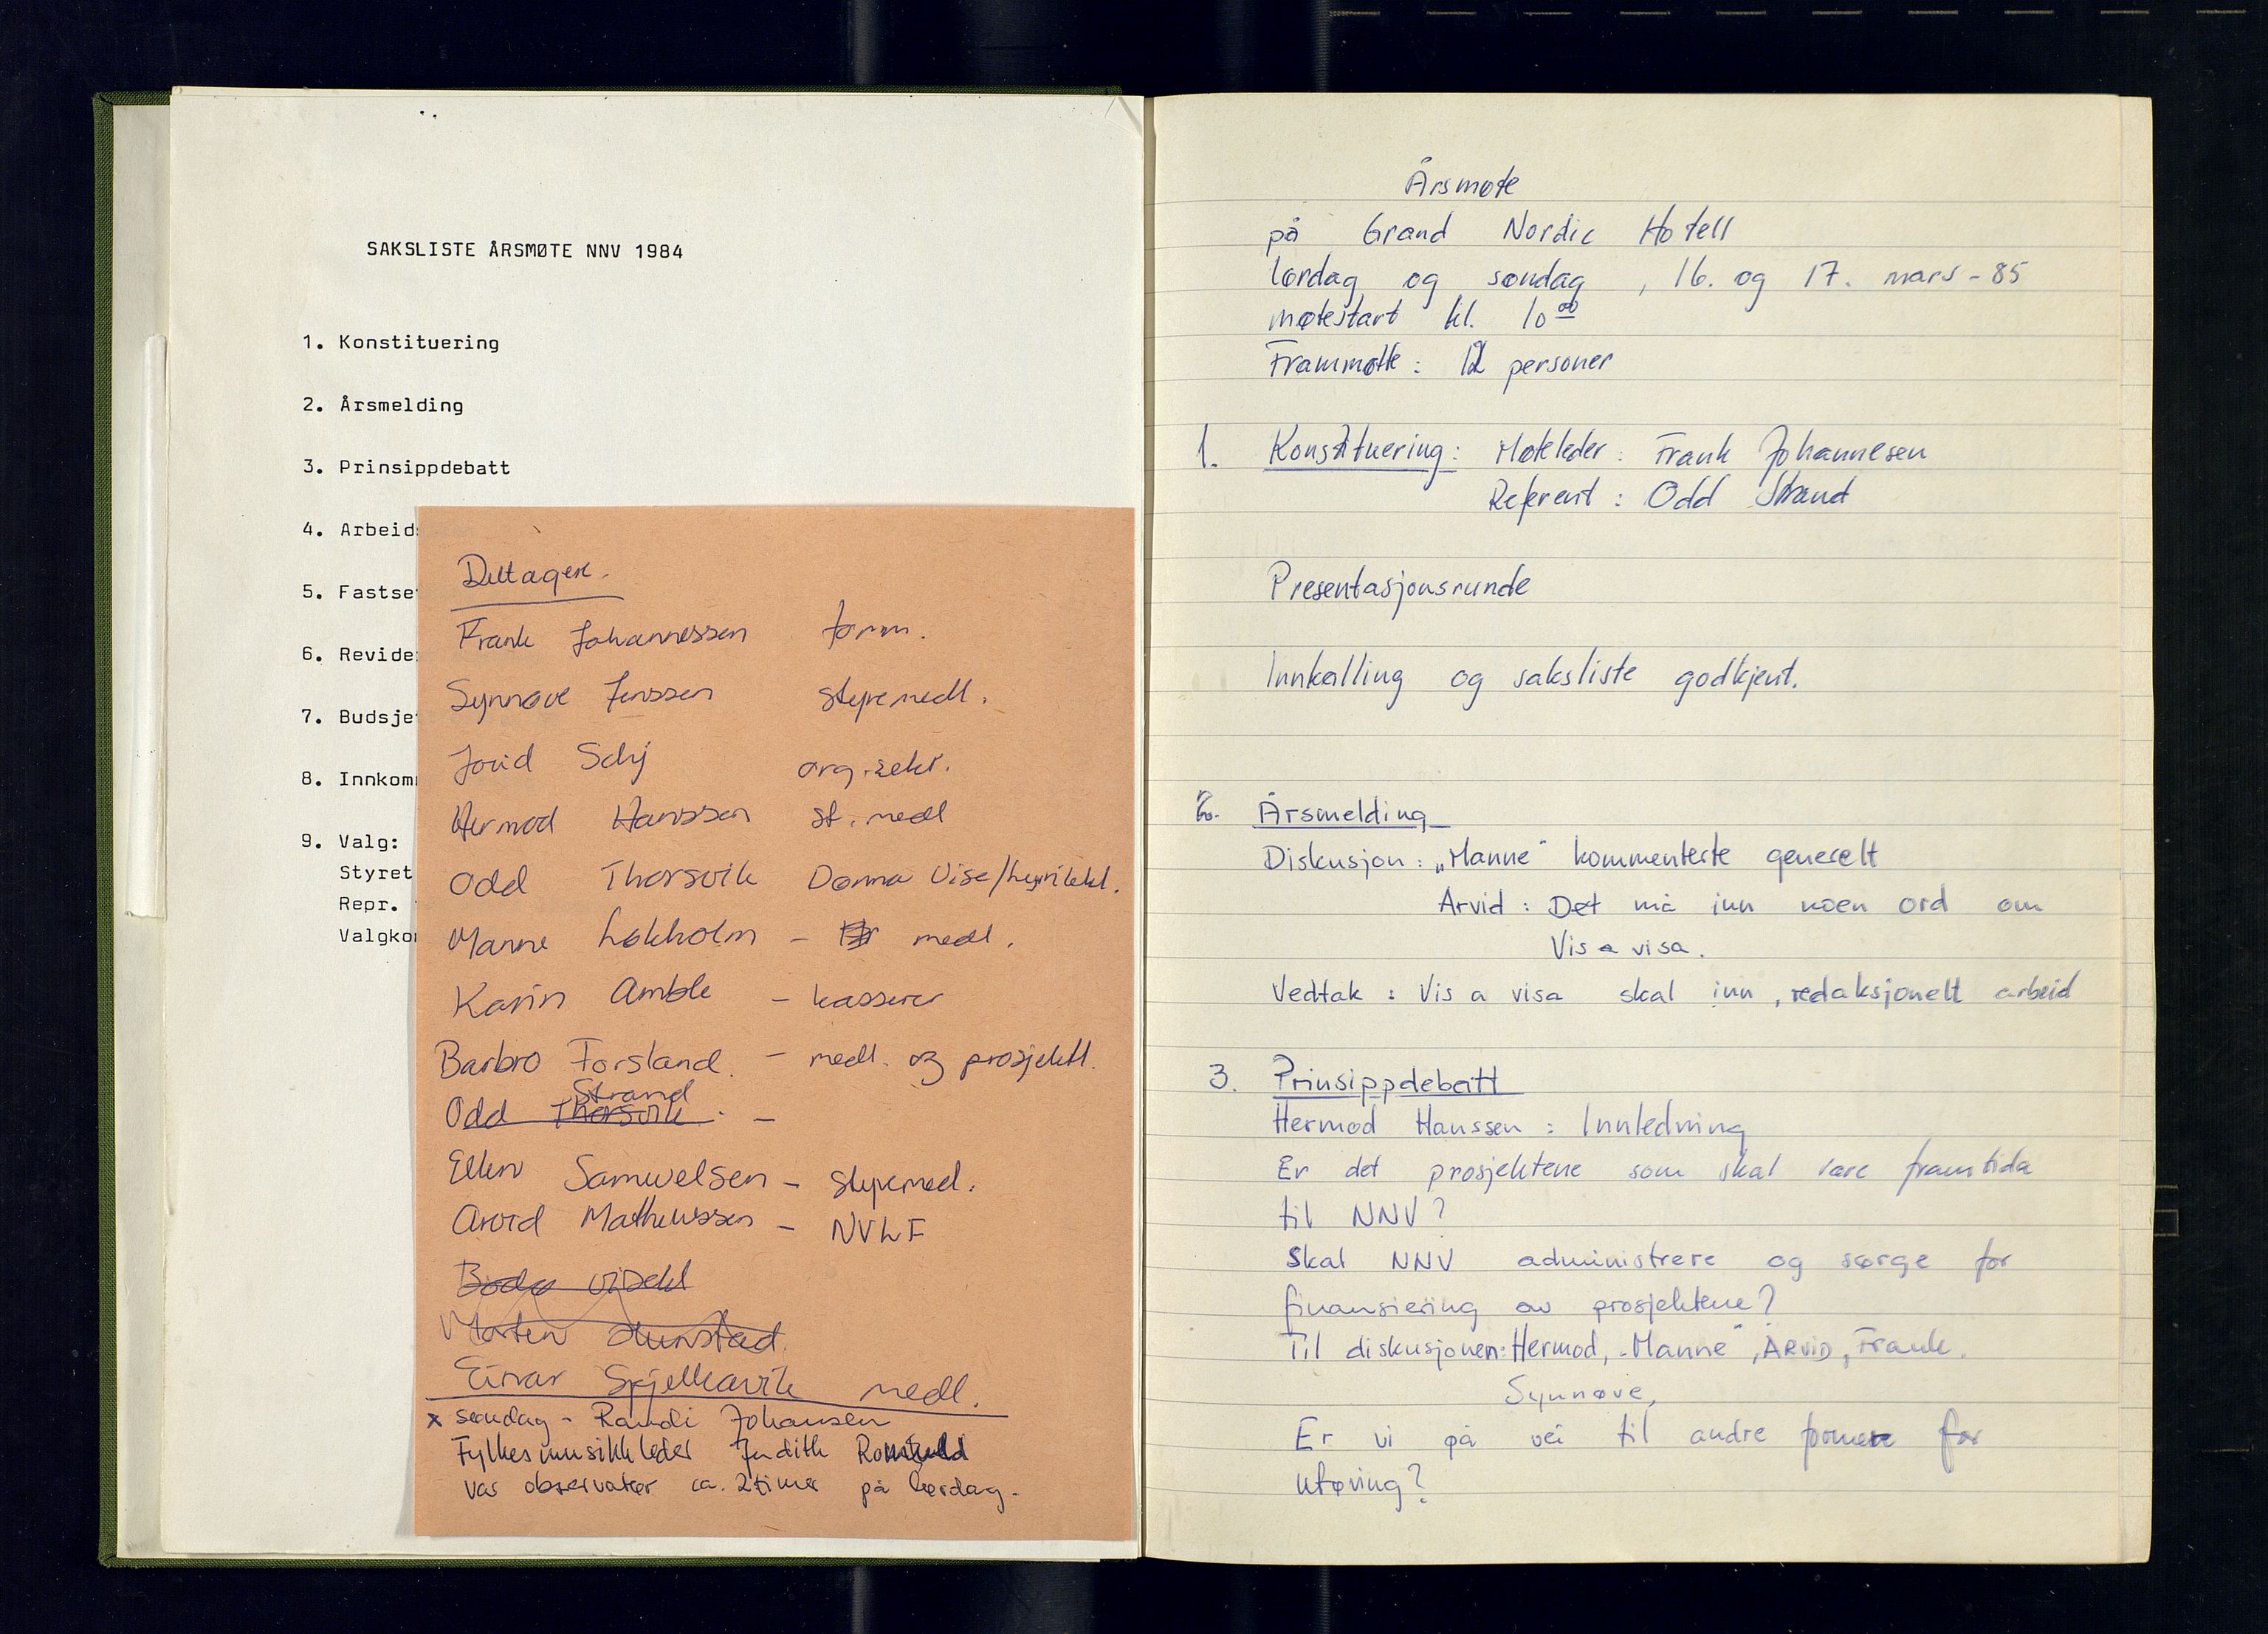 SAKSLISTE ÅRSMØTE NNV 1984
1. Konstituering
2. Årsmelding
3. Prinsippdebatt
4. Arbeids
5. Fastse
6. Revide
7. Budsje
8. Innkom
9. Valg:
Styret
Repr.
Valgko
Deltagere.
Frank Johannessen form.
Synnøve Jenssen styremedl.
Jovid Schj org.sekr.
Hermod Hanssen st. medl
Odd Thorsvik Dønna Vise/
Manne Lokholm - medl.
Karin Amble - kasserer
Barbro Forsland. - medl. og prosjektl.
Odd Thorsvik Strand. -
Ellen Samuelsen - styremed.
Arvid Mathiessen - NVLF
Bodø visekl
Morten Aunstad.
Einar Skjellvik medl.
x søndag - Randi Johansen
Fylkesmusikkleder Judith
var observatør ca. 2 timer på lørdag.
Årsmøte
på Grand Nordic Hotell
lørdag og søndag, 16. og 17. mars - 85
møtestart kl. 10 00
Frammøtte: 12 personer
1. Konstituering: Møteleder: Frank Johannesen
Referent: Odd Strand
Presentasjonsrunde
Innkalling og saksliste godkjent.
2. Årsmelding
Diskusjon: „Manne" kommenterte generelt
Arvid: Det må inn noen ord om
Vis a visa.
Vedtak: Vis a visa skal inn, redaksjonelt arbeid
3. Prinsippdebatt
Hermod Hanssen: Innledning
Er det prosjektene som skal være framtida
til NNV?
Skal NNV administrere og sørge for
finansiering av prosjektene?
Til diskusjonen: Hermod, „Manne", ARVID, Frank.
Synnøve,
Er vi på vei til andre former for
utøving?